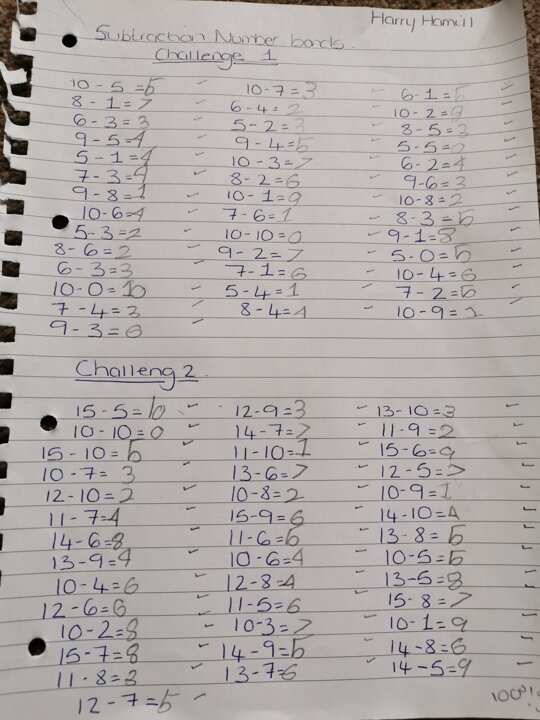 Harry Hamill
Subtraction Number bonds.
Challenge 1
10 - 5 = 5 ✓ 10 - 7 = 3 ✓ 6 - 1 = 5 ✓
8 - 1 = 7 ✓ 6 - 4 = 2 ✓ 10 - 2 = 8 ✓
6 - 3 = 3 ✓ 5 - 2 = 3 ✓ 8 - 5 = 3 ✓
9 - 5 = 4 ✓ 9 - 4 = 5 ✓ 5 - 5 = 0 ✓
5 - 1 = 4 ✓ 10 - 3 = 7 ✓ 6 - 2 = 4 ✓
7 - 3 = 4 ✓ 8 - 2 = 6 ✓ 9 - 6 = 3 ✓
9 - 8 = 1 ✓ 10 - 1 = 9 ✓ 10 - 8 = 2 ✓
10 - 6 = 4 ✓ 7 - 6 = 1 ✓ 8 - 3 = 5 ✓
5 - 3 = 2 ✓ 10 - 10 = 0 ✓ 9 - 1 = 8 ✓
8 - 6 = 2 ✓ 9 - 2 = 7 ✓ 5 - 0 = 5 ✓
6 - 3 = 3 ✓ 7 - 1 = 6 ✓ 10 - 4 = 6 ✓
10 - 0 = 10 ✓ 5 - 4 = 1 ✓ 7 - 2 = 5 ✓
7 - 4 = 3 ✓ 8 - 4 = 4 ✓ 10 - 9 = 1 ✓
9 - 3 = 6 ✓
Challeng 2.
15 - 5 = 10 ✓ 12 - 9 = 3 ✓ 13 - 10 = 3 ✓
10 - 10 = 0 ✓ 14 - 7 = 7 ✓ 11 - 9 = 2 ✓
15 - 10 = 5 ✓ 11 - 10 = 1 ✓ 15 - 6 = 9 ✓
10 - 7 = 3 ✓ 13 - 6 = 7 ✓ 12 - 5 = 7 ✓
12 - 10 = 2 ✓ 10 - 8 = 2 ✓ 10 - 9 = 1 ✓
11 - 7 = 4 ✓ 15 - 9 = 6 ✓ 14 - 10 = 4 ✓
14 - 6 = 8 ✓ 11 - 6 = 5 ✓ 13 - 8 = 5 ✓
13 - 9 = 4 ✓ 10 - 6 = 4 ✓ 10 - 5 = 5 ✓
10 - 4 = 6 ✓ 12 - 8 = 4 ✓ 13 - 5 = 8 ✓
12 - 6 = 6 ✓ 11 - 5 = 6 ✓ 15 - 8 = 7 ✓
10 - 2 = 8 ✓ 10 - 3 = 7 ✓ 10 - 1 = 9 ✓
15 - 7 = 8 ✓ 14 - 9 = 5 ✓ 14 - 8 = 6 ✓
11 - 8 = 3 ✓ 13 - 7 = 6 ✓ 14 - 5 = 9 ✓
12 - 7 = 5 ✓
100%